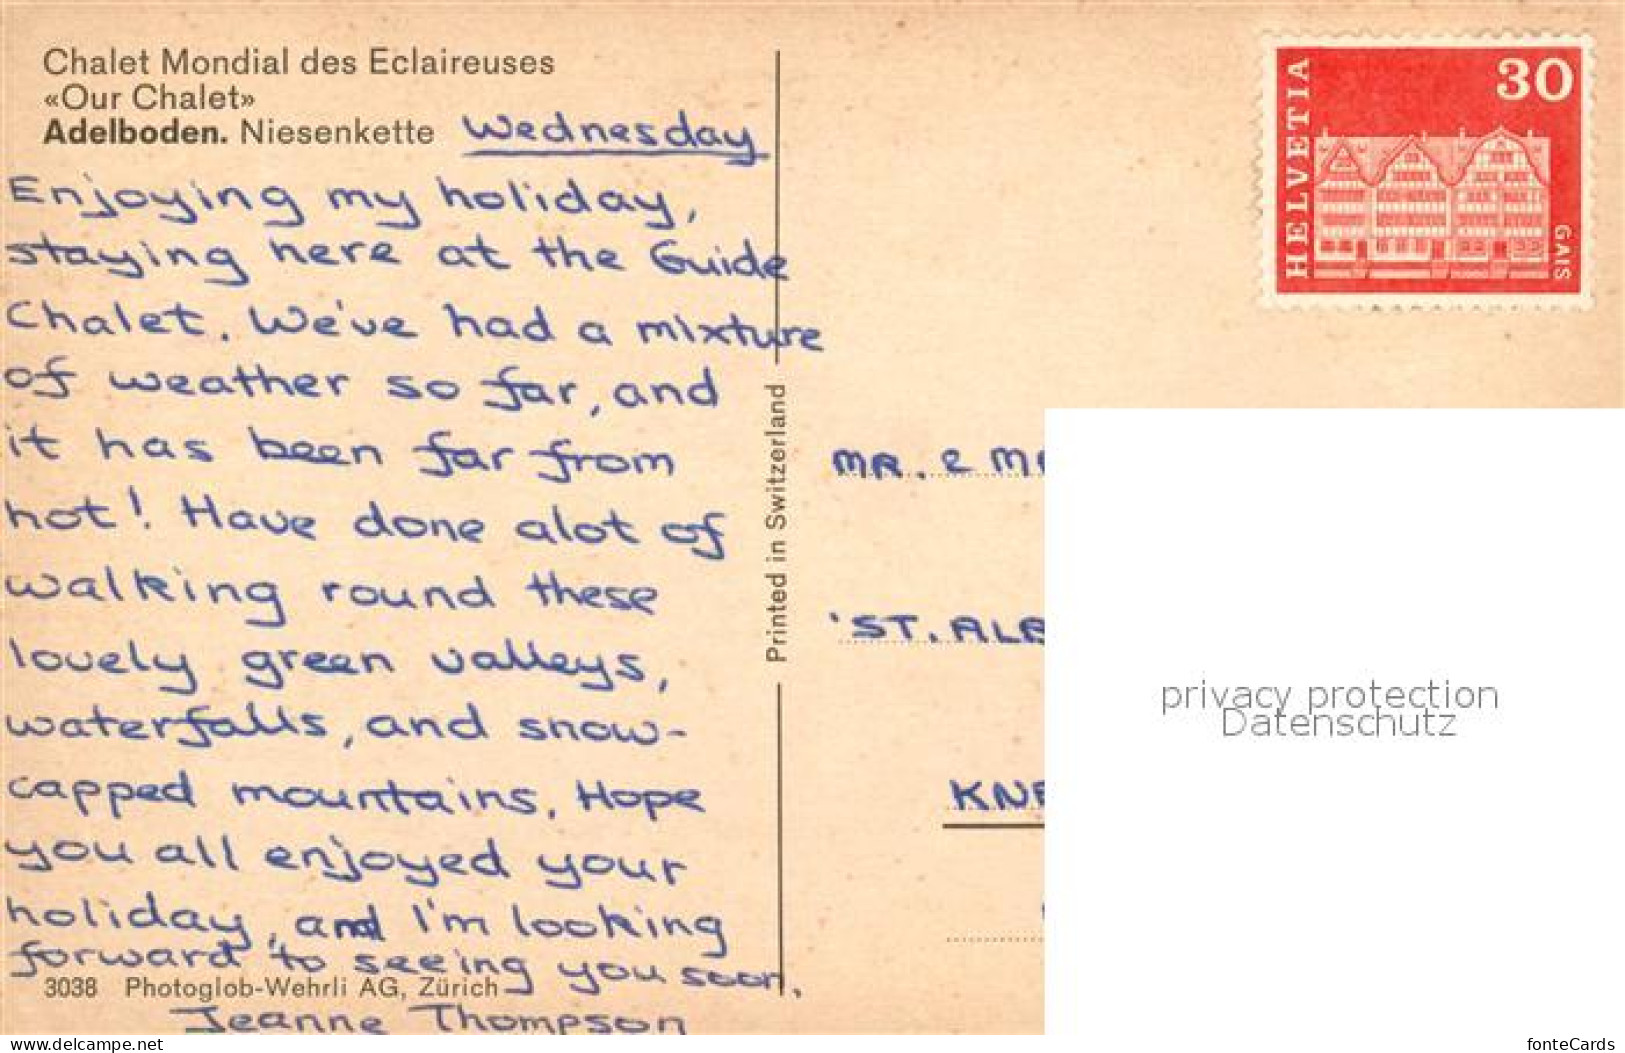 Chalet Mondial des Eclaireuses
«Our Chalet»
Adelboden. Niesenkette Wednesday
Enjoying my holiday,
staying here at the Guide
Chalet. We've had a mixture
of weather so far, and
it has been far from
hot! Have done alot of
walking round these
lovely green valleys,
waterfalls, and snow-
capped mountains. Hope
you all enjoyed your
holiday, and I'm looking
forward to seeing you soon.
3038 Photoglob-Wehrli AG, Zürich
Jeanne Thompson
Printed in Switzerland
HELVETIA
30
GAIS
MR. & M
'ST. ALB
KNE
privacy protection
Datenschutz
www.delcampe.net
fonteCards